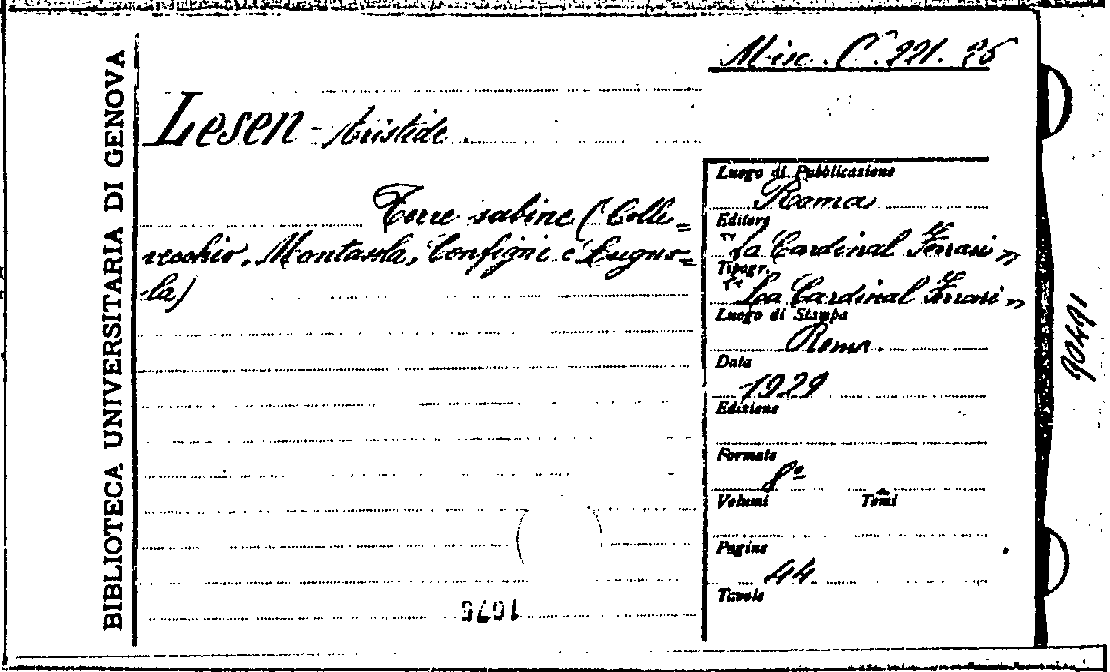 BIBLIOTECA UNIVERSITARIA DI GENOVA
Misc. C. 221. 25
Lesen - Aristide
Terre sabine (Colle=
vecchio, Montasola, Configni e Lugno=
la)
Luogo di Pubblicazione
Roma
Editore
"La Cardinal Ferrari"
Tipogr.
"La Cardinal Ferrari"
Luogo di Stampa
Roma
Data
1929
Edizione
Formato
8º
Volumi Tomi
Pagine
44
Tavole
1676